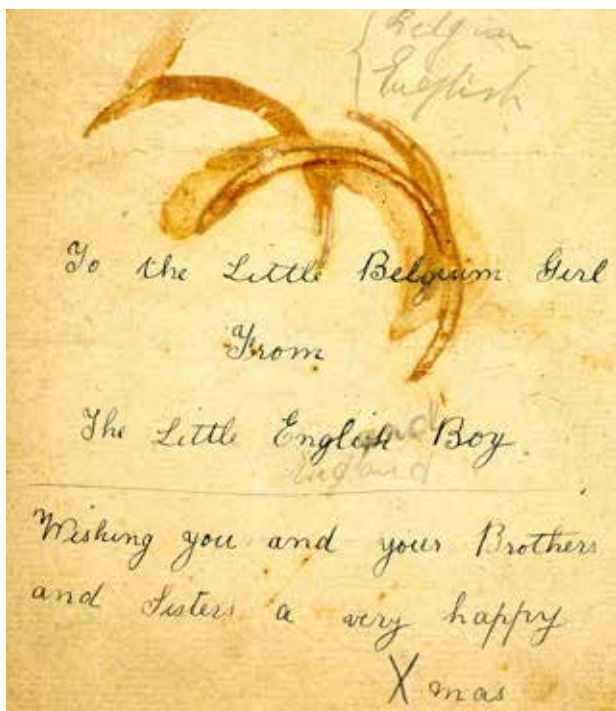 Belgian
English
To the Little Belgium Girl
From
The Little English Boy
England
Wishing you and your Brothers
and Sisters a very happy
Xmas